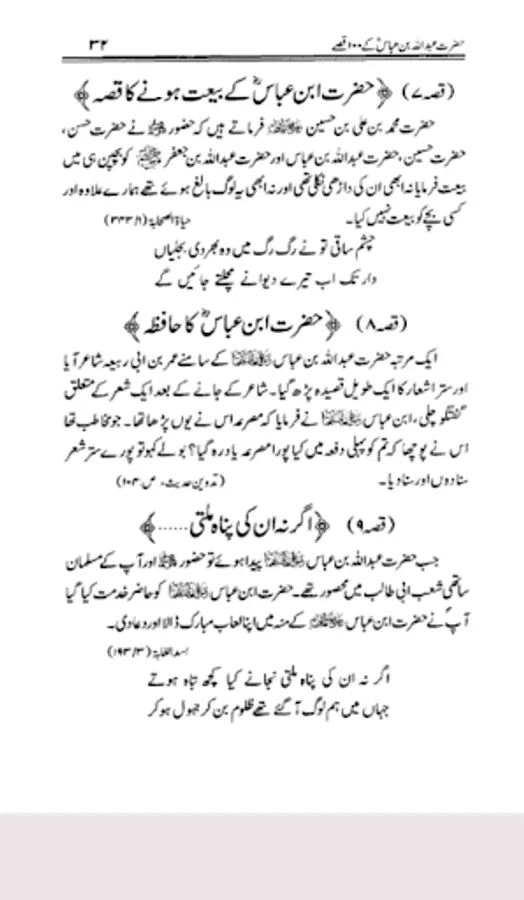 حضرت عبداللہ بن عباسؓ کے ۱۰۰ قصے ۳۲
(قصہ ۷) ﴿حضرت ابن عباسؓ کے بیعت ہونے کا قصہ﴾
حضرت محمد بن علی بن حسین فرماتے ہیں کہ حضور ﷺ نے حضرت حسن،
حضرت حسین، حضرت عبداللہ بن عباس اور حضرت عبداللہ بن جعفر کو بچپن ہی میں
بیعت فرمایا نہ ابھی ان کی داڑھی نکلی تھی اور نہ ابھی یہ لوگ بالغ ہوئے تھے ہمارے علاوہ اور
کسی بچے کو بیعت نہیں کیا۔ حیاۃ الصحابۃ (۱/۳۴۳)
چشم ساقی تو نے رگ رگ میں وہ بھر دی بجلیاں
دار تک اب تیرے دیوانے مچلتے جائیں گے
(قصہ ۸) ﴿حضرت ابن عباسؓ کا حافظہ﴾
ایک مرتبہ حضرت عبداللہ بن عباس کے سامنے عمر بن ابی ربیعہ شاعر آیا
اور ستر اشعار کا ایک طویل قصیدہ پڑھ گیا۔ شاعر کے جانے کے بعد ایک شعر کے متعلق
گفتگو چلی، ابن عباس نے فرمایا کہ مصرعہ اس نے یوں پڑھا تھا۔ جو مخاطب تھا
اس نے پوچھا کہ تم کو پہلی دفعہ میں کیا پورا مصرعہ یاد رہ گیا؟ بولے کہو تو پورے ستر شعر
سنا دوں اور سنا دیا۔ (تدوین حدیث، ص ۱۰۴)
(قصہ ۹) ﴿اگر نہ ان کی پناہ ملتی ......﴾
جب حضرت عبداللہ بن عباس پیدا ہوئے تو حضور ﷺ اور آپ کے مسلمان
ساتھی شعب ابی طالب میں محصور تھے۔ حضرت ابن عباس کو حاضر خدمت کیا گیا
آپؐ نے حضرت ابن عباس کے منہ میں اپنا لعاب مبارک ڈالا اور دعا دی۔
اسد الغابۃ (۳/۱۹۳)
اگر نہ ان کی پناہ ملتی نجانے کیا کچھ تباہ ہوتے
جہاں میں ہم لوگ آ گئے تھے ظلوم بن کر جہول ہو کر